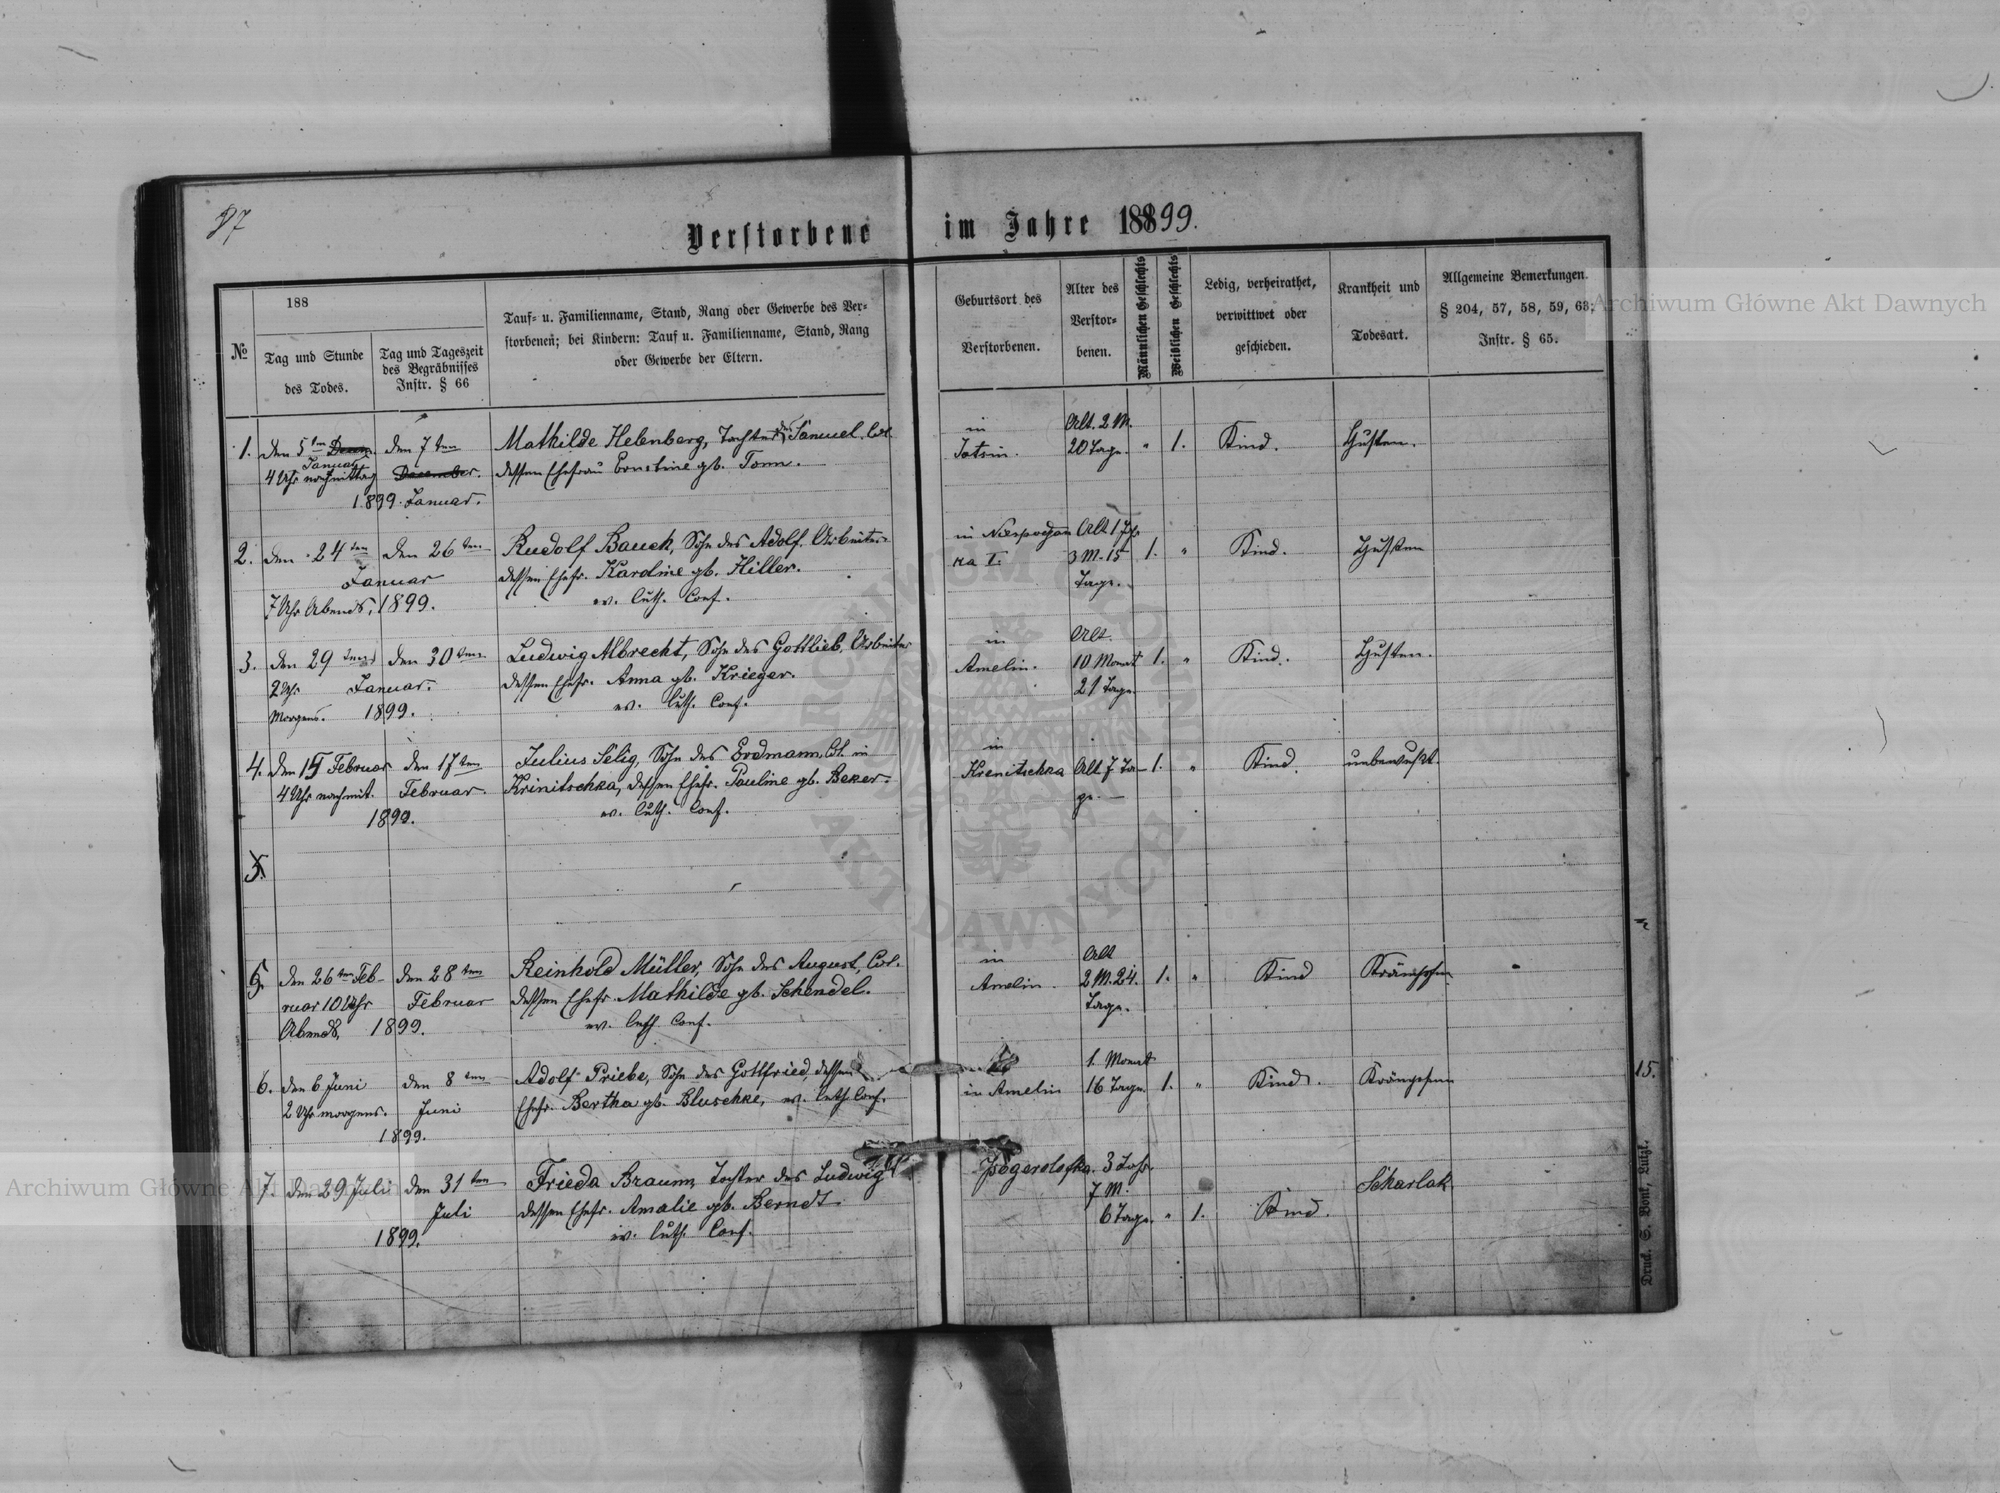 87
Verstorbene im Jahre 18899.
№
188
Tag und Stunde
des Todes.
Tag und Tageszeit
des Begräbnisses
Instr. § 66
Tauf- u. Familienname, Stand, Rang oder Gewerbe des Ver-
storbenen; bei Kindern: Tauf u. Familienname, Stand, Rang
oder Gewerbe der Eltern.
Geburtsort des
Verstorbenen.
Alter des
Verstor-
benen.
Männlichen Geschlechts
Weiblichen Geschlechts
Ledig, verheirathet,
verwittwet oder
geschieden.
Krankheit und
Todesart.
Allgemeine Bemerkungen.
§ 204, 57, 58, 59, 63;
Instr. § 65.
1.
den 5ten
Januar
4 Uhr nachmittag
den 7ten
December.
1899. Januar.
Mathilde Helenberg, Tochter des Samuel, Col.
dessen Ehefrau Ernstine gb. Tonn.
in
Jatrin.
Alt. 2 M.
20 Tage.
" 1.
Kind.
Husten.
2.
den 24ten
Januar
7 Uhr Abends, 1899.
den 26ten
Rudolf Bauch, Sohn des Adolf, Arbeiter
dessen Ehefr. Karoline gb. Hiller.
ev. luth. Conf.
in
ra I.
Alt 1 Jhr
3 M. 15
Tage.
1. "
Kind.
Husten
3.
den 29ten
2 Uhr Januar.
Morgens. 1899.
den 30ten
Ludwig Albrecht, Sohn des Gottlieb, Arbeiter
dessen Ehefr. Anna gb. Krieger.
ev. luth. Conf.
in
Amelin.
Alt.
10 Monat
21 Tage.
1. "
Kind.
Husten.
4.
den 15 Februar
4 Uhr nachmit.
1899.
den 17ten
Februar.
Julius Selig, Sohn des Erdmann, Col. in
Krinitschka, dessen Ehefr. Pauline gb. Beker.
ev. luth. Conf.
in
Krenitschka
Alt 7 Ta-
ge.
1. "
Kind.
unbewußt.
5.
6.
den 26ten Feb-
ruar 10 Uhr
Abends, 1899.
den 28ten
Februar
Reinhold Müller, Sohn des August, Col.
dessen Ehefr. Mathilde gb. Schendel.
ev. luth. Conf.
in
Amelin.
Alt
2 M. 24.
Tage.
1. "
Kind
6.
den 6 Juni
2 Uhr morgens.
1899.
den 8ten
Juni
Adolf Priebe, Sohn des Gottfried, dessen
Ehefr. Bertha gb. Bluschke, ev. luth. Conf.
in Amelin
1. Monat
16 Tage.
1. "
Kind.
15.
7.
den 29 Juli
1899.
den 31ten
Juli
Frieda Braun, Tochter des Ludwig
dessen Ehefr. Amalie gb. Berndt.
ev. luth. Conf.
3 Jahr.
7 M.
6 Tage.
" 1.
Kind.
Scharlak
Druck. S. Bonk, Luzk.
Archiwum Główne Akt Dawnych
Archiwum Główne Akt Dawnych
ARCHIWUM GŁÓWNE
AKT DAWNYCH